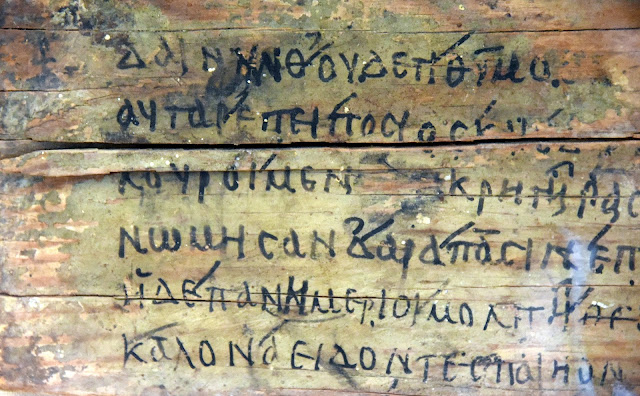 δαινυνθουδετιθυμο
αυταρεπειποϲιοϲκ
κουροιμεν κρητηραϲ
νωμηϲανδαραπαϲινεπ
ηδεπανημεριοιμολπηθε
καλοναειδοντεϲπαιηον